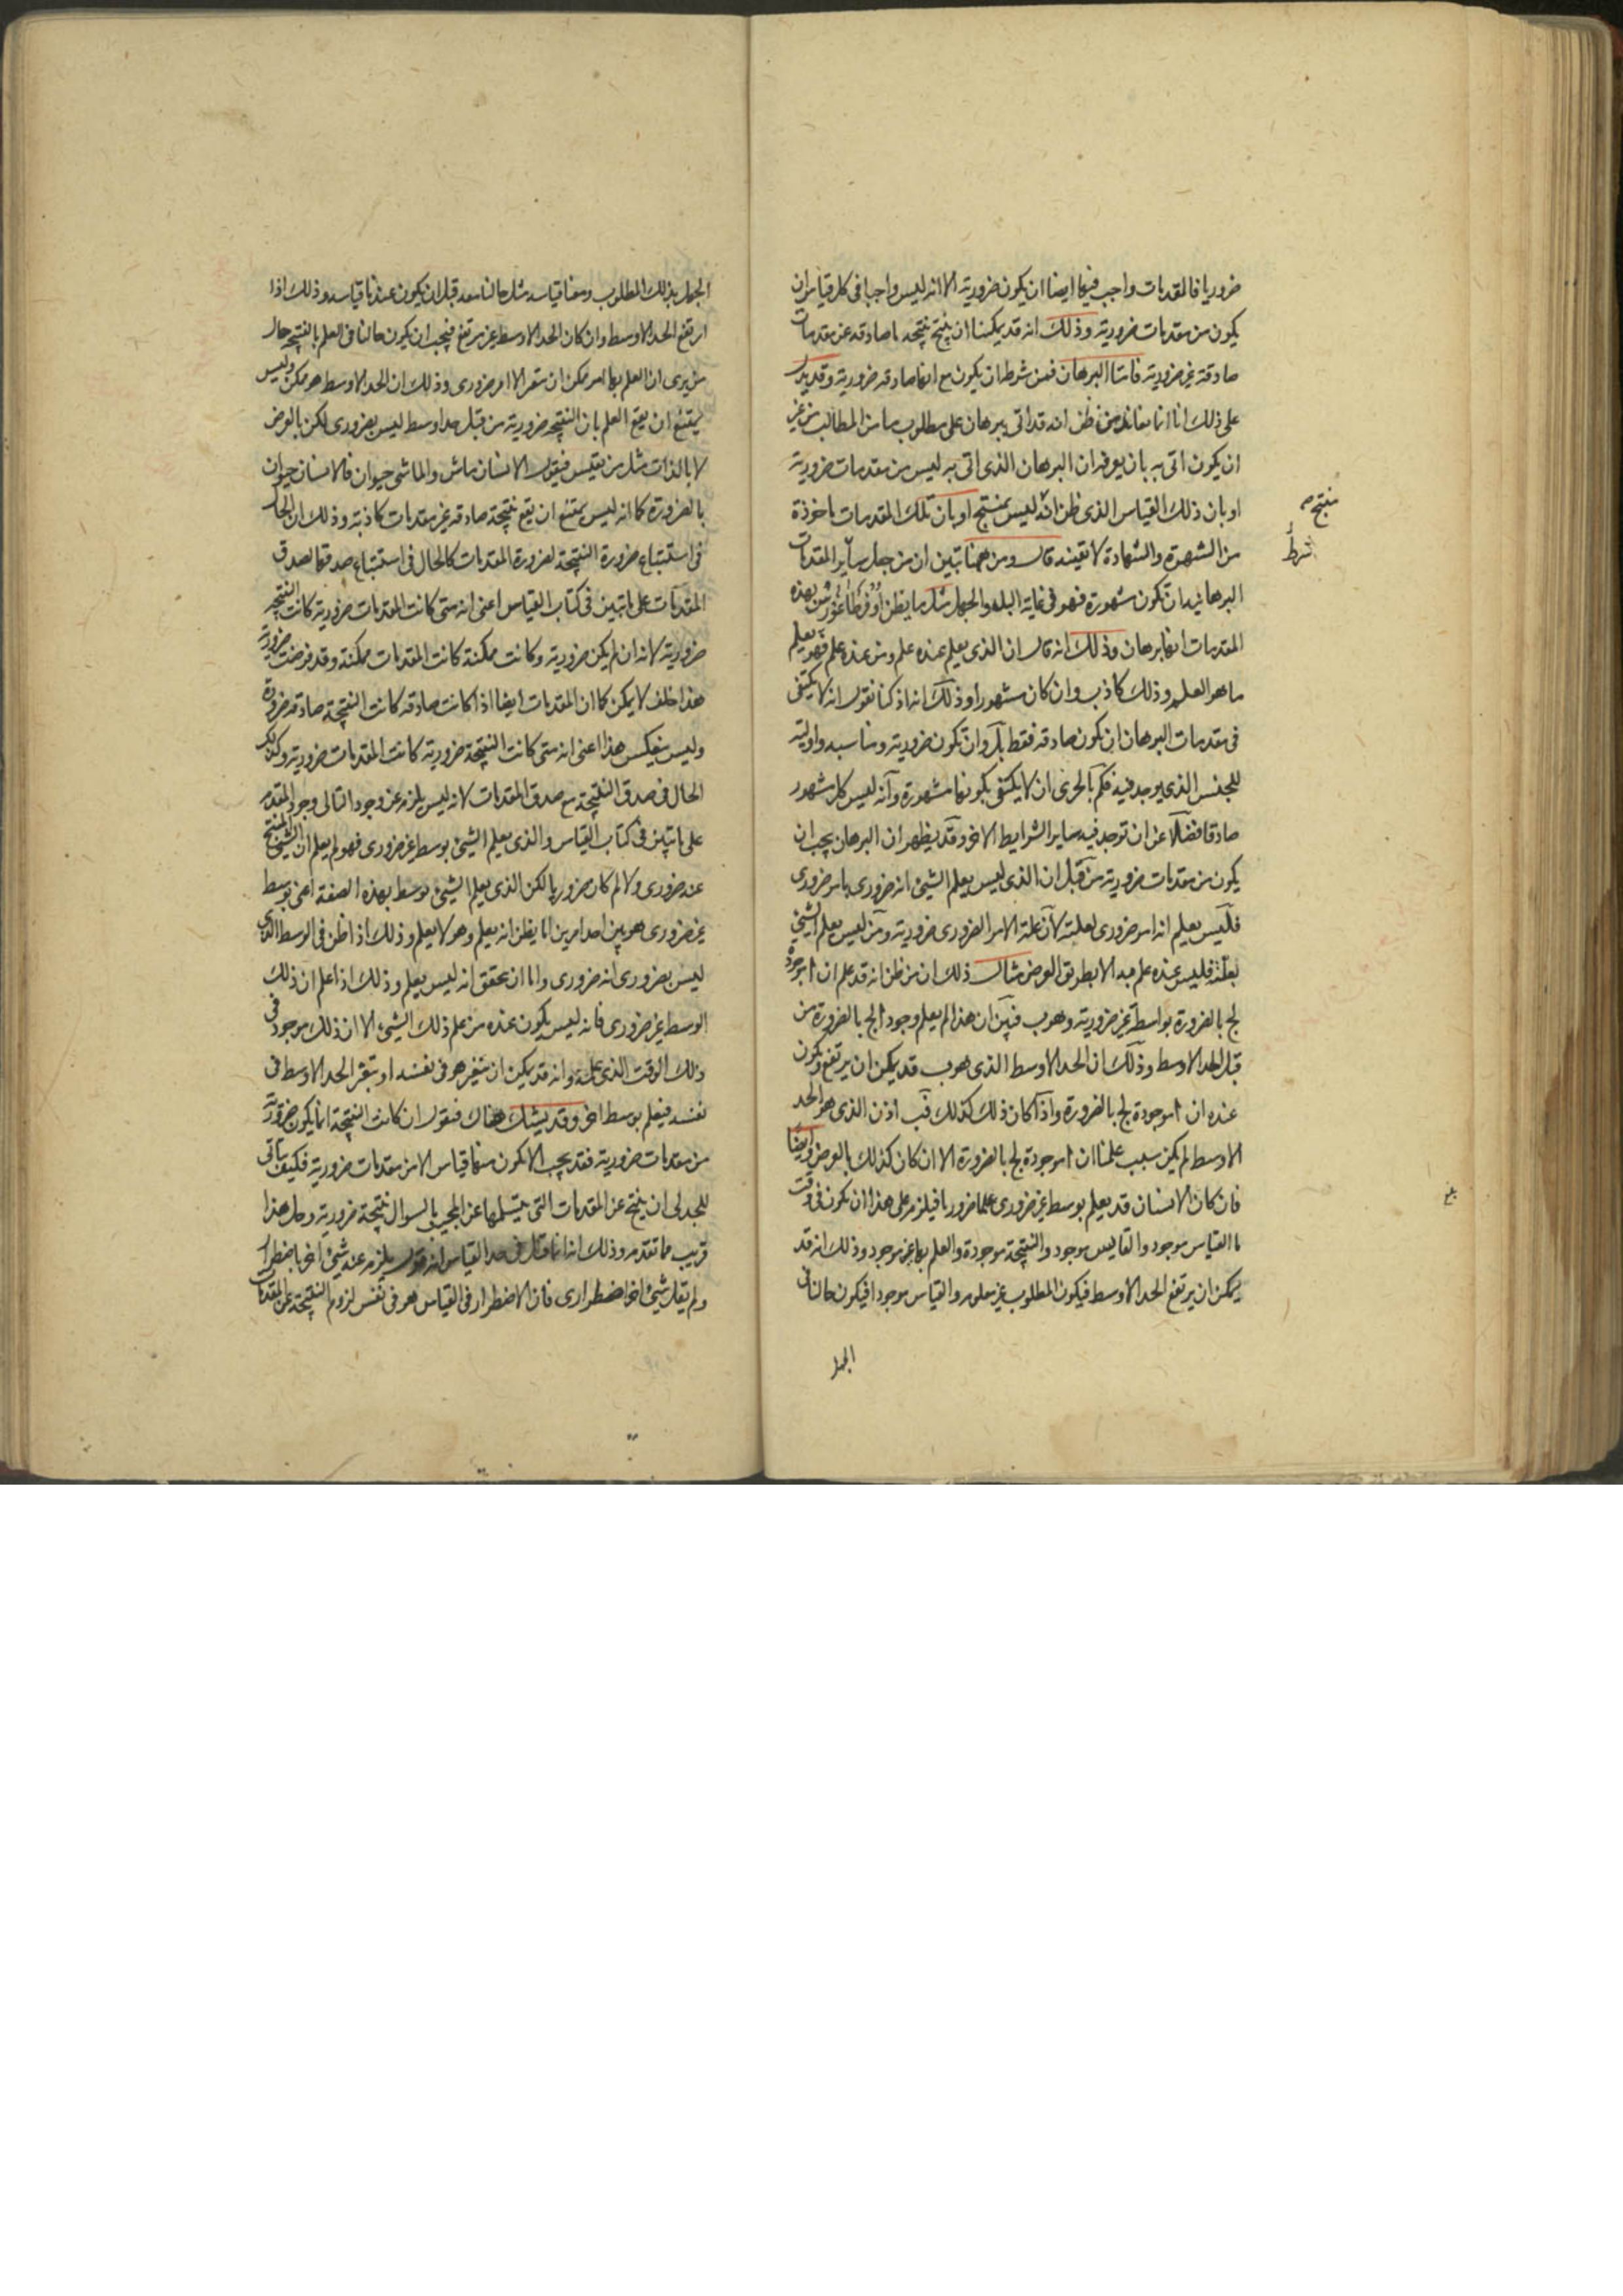 ضروريا فالمقدمات واجب فيها ايضا ان يكون ضرورية الا انه ليس واجبا فى كل قياس ان
يكون من مقدمات ضرورية وذلك انه قد يمكننا ان ينتج نتيجة ما صادقه عن مقدمات
صادقة غير ضرورية فاما البرهان فمن شرطه ان يكون مع انها صادقه ضرورية وقد يدل
على ذلك انا انما نعاند من ظن انه قد اتى ببرهان على مطلوب ما من المطالب من غير
ان يكون اتى به بان يعرف ان البرهان الذى اتى به ليس من مقدمات ضرورية
او بان ذلك القياس الذى ظن انه ليس بمنتج او بان تلك المقدمات ماخوذة
منتج صح
من الشهرة والشهادة لا تفيد قال ومن ههنا تبين ان من جعل ساير المقدمات
شرط
البرهانيه ان تكون مشهورة فهو فى غاية البله والجهل مثل ما يظن بهذه
المقدمات انها برهان وذلك انه قال ان الذى يعلم عنده علم ومن عنده علم فهو يعلم
ما هو العلم وذلك كاذب وان كان مشهورا وذلك انه اذ كنا نقول انه لا يكتفى
فى مقدمات البرهان ان يكون صادقه فقط بل وان تكون ضرورية ومناسبه واولية
للجنس الذى يوجد فيه فكم بالحرى ان لا يكتفى بكونها مشهورة وانه ليس كل مشهور
صادقا فضلا عن ان توجد فيه ساير الشرايط الاخر وقد يظهر ان البرهان يجب ان
يكون من مقدمات ضرورية من قبل ان الذى ليس يعلم الشئ انه ضرورى بامر ضرورى
فليس يعلم انه امر ضرورى لعلته لان علة الامر الضرورى ضرورية ومن ليس يعلم الشئ
بعلته فليس عنده علم به الا بطريق العرض مثال ذلك ان من ظن انه قد علم ان ا موجودة
لج بالضرورة بواسطة غير ضرورية وهو ب فبين ان هذا لم يعلم وجود ا لج بالضرورة من
قبل الحد الاوسط وذلك ان الحد الاوسط الذى هو ب قد يمكن ان يرتفع ويكون
عنده ان ا موجودة لج بالضرورة واذا كان ذلك كذلك فب اذن الذى هو الحد
الاوسط لم يكن سبب علمنا ان ا موجودة لج بالضرورة الا ان كان كذلك بالعرض وايضا
فان كان الانسان قد يعلم بوسط غير ضرورى علما ضروريا فيلزم على هذا ان يكون فى وقت
ما القياس موجود والقايس موجود والنتيجة موجودة والعلم بها غير موجود وذلك انه قد
يمكن ان يرتفع الحد الاوسط فيكون المطلوب غير معلوم والقياس موجودا فيكون حالنا فى
الجهل
الجهل بذلك المطلوب ومعنا قياسه مثل حالنا معه قبل ان يكون عندنا قياسه وذلك اذا
ارتفع الحد الاوسط وان كان الحد الاوسط غير مرتفع فيجب ان يكون حالنا فى العلم بالنتيجة حال
من يرى ان العلم بها امر ممكن ان يتغير لا امر ضرورى وذلك ان الحد الاوسط هو ممكن وليس
يمتنع ان يقع العلم بان النتيجة ضرورية من قبل حد اوسط ليس بضرورى لكن بالعرض
لا بالذات مثل من يقيس فيقول الانسان ماش والماشى حيوان فالانسان حيوان
بالضرورة كما انه ليس يمتنع ان يقع نتيجة صادقه عن مقدمات كاذبة وذلك ان الحال
فى استتباع ضرورة النتيجة لضرورة المقدمات كالحال فى استتباع صدقها لصدق
المقدمات على ما تبين فى كتاب القياس اعنى انه متى كانت المقدمات ضرورية كانت النتيجة
ضرورية لانه ان لم يكن ضرورية وكانت ممكنة كانت المقدمات ممكنة وقد فرضت ضرورية
هذا خلف لا يمكن كما ان المقدمات ايضا اذا كانت صادقه كانت النتيجة صادقه ضرورة
وليس ينعكس هذا اعنى انه متى كانت النتيجة ضرورية كانت المقدمات ضرورية وكذلك
الحال فى صدق النتيجة مع صدق المقدمات لانه ليس يلزم عن وجود التالى وجود المقدم
على ما تبين فى كتاب القياس والذى يعلم الشئ بوسط غير ضرورى فهو لم يعلم ان الشئ المنتج
عنه ضرورى ولا لم كان ضروريا لكن الذى يعلم الشئ بوسط بهذه الصفة اعنى بوسط
غير ضرورى هو بين احد امرين اما يظن انه يعلم وهو لا يعلم وذلك اذا ظن فى الوسط الذى
ليس بضرورى انه ضرورى واما ان يتحقق انه ليس يعلم وذلك اذا علم ان ذلك
الوسط غير ضرورى فانه ليس يكون عنده من علم ذلك الشئ الا ان ذلك موجود فى
ذلك الوقت الذى علمه وانه قد يمكن ان يتغير هو فى نفسه او يتغير الحد الاوسط فى
نفسه فيعلم بوسط اخر وقد يشك هناك فنقول ان كانت النتيجة انما يكون ضرورية
من مقدمات ضرورية فقد يجب الا يكون منها قياس الا من مقدمات ضرورية فكيف يتاتى
للجدلى ان ينتج عن المقدمات التى يتسلمها عن المجيب بالسوال نتيجة ضرورية وحل هذا
قريب مما تقدم وذلك انه انما قيل فى حد القياس انه قول يلزم عنه شئ اخر باضطرار
ولم يقل شئ اخر اضطرارى فان الاضطرار فى القياس هو فى نفس لزوم النتيجة عن المقدمات